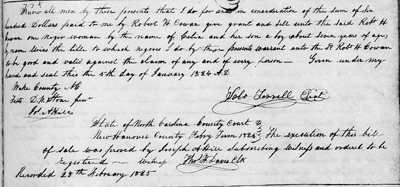 Know all men by these presents that I do for and in consideration of the sum of Six
hundred Dollars paid to me by Robert H Cowan give grant and sell unto the said Robt H
Cowan one Negro woman by the name of Celia and her son a boy about seven years of age,
by name the title to which negroes I do by these presents warrant unto the sd Robt H Cowan
to be good and valid against the claim of any and of every person — Given under my
hand and seal this the 5th day of January 1824 A.D
Wake County NC
Teste D. W Stone Jun
Jos. Akill
Jabo Terrell Seal
State of North Carolina County Court
New Hanover County Feby Term 1825 The execution of this bill
of sale was proved by Joseph Akill Subscribing Witness and ordered to be
registered — Witness Thos F. Davis Clk
Recorded 28th February 1825